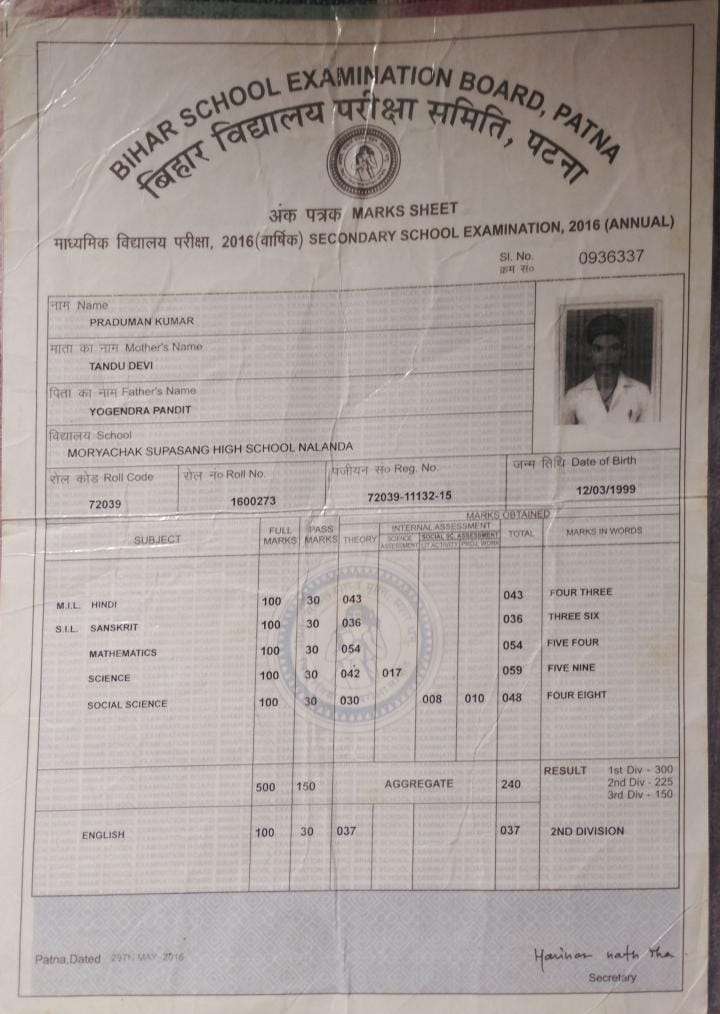 BIHAR SCHOOL EXAMINATION BOARD, PATNA
बिहार विद्यालय परीक्षा समिति, पटना
अंक पत्रक MARKS SHEET
माध्यमिक विद्यालय परीक्षा, 2016(वार्षिक) SECONDARY SCHOOL EXAMINATION, 2016 (ANNUAL)
Sl. No. 0936337
क्रम सं०
नाम Name
PRADUMAN KUMAR
माता का नाम Mother's Name
TANDU DEVI
पिता का नाम Father's Name
YOGENDRA PANDIT
विद्यालय School
MORYACHAK SUPASANG HIGH SCHOOL NALANDA
रोल कोड Roll Code रोल नं० Roll No. पंजीयन सं० Reg. No. जन्म तिथि Date of Birth
72039 1600273 72039-11132-15 12/03/1999
MARKS OBTAINED
SUBJECT FULL MARKS PASS MARKS THEORY INTERNAL ASSESSMENT TOTAL MARKS IN WORDS
SCIENCE ASSESSMENT SOCIAL SC. ASSESSMENT
LIT ACTIVITY PROJ. WORK
M.I.L. HINDI 100 30 043 043 FOUR THREE
S.I.L. SANSKRIT 100 30 036 036 THREE SIX
MATHEMATICS 100 30 054 054 FIVE FOUR
SCIENCE 100 30 042 017 059 FIVE NINE
SOCIAL SCIENCE 100 30 030 008 010 048 FOUR EIGHT
500 150 AGGREGATE 240 RESULT 1st Div - 300
2nd Div - 225
3rd Div - 150
ENGLISH 100 30 037 037 2ND DIVISION
Patna,Dated 29TH MAY 2016
Harihar nath Jha
Secretary